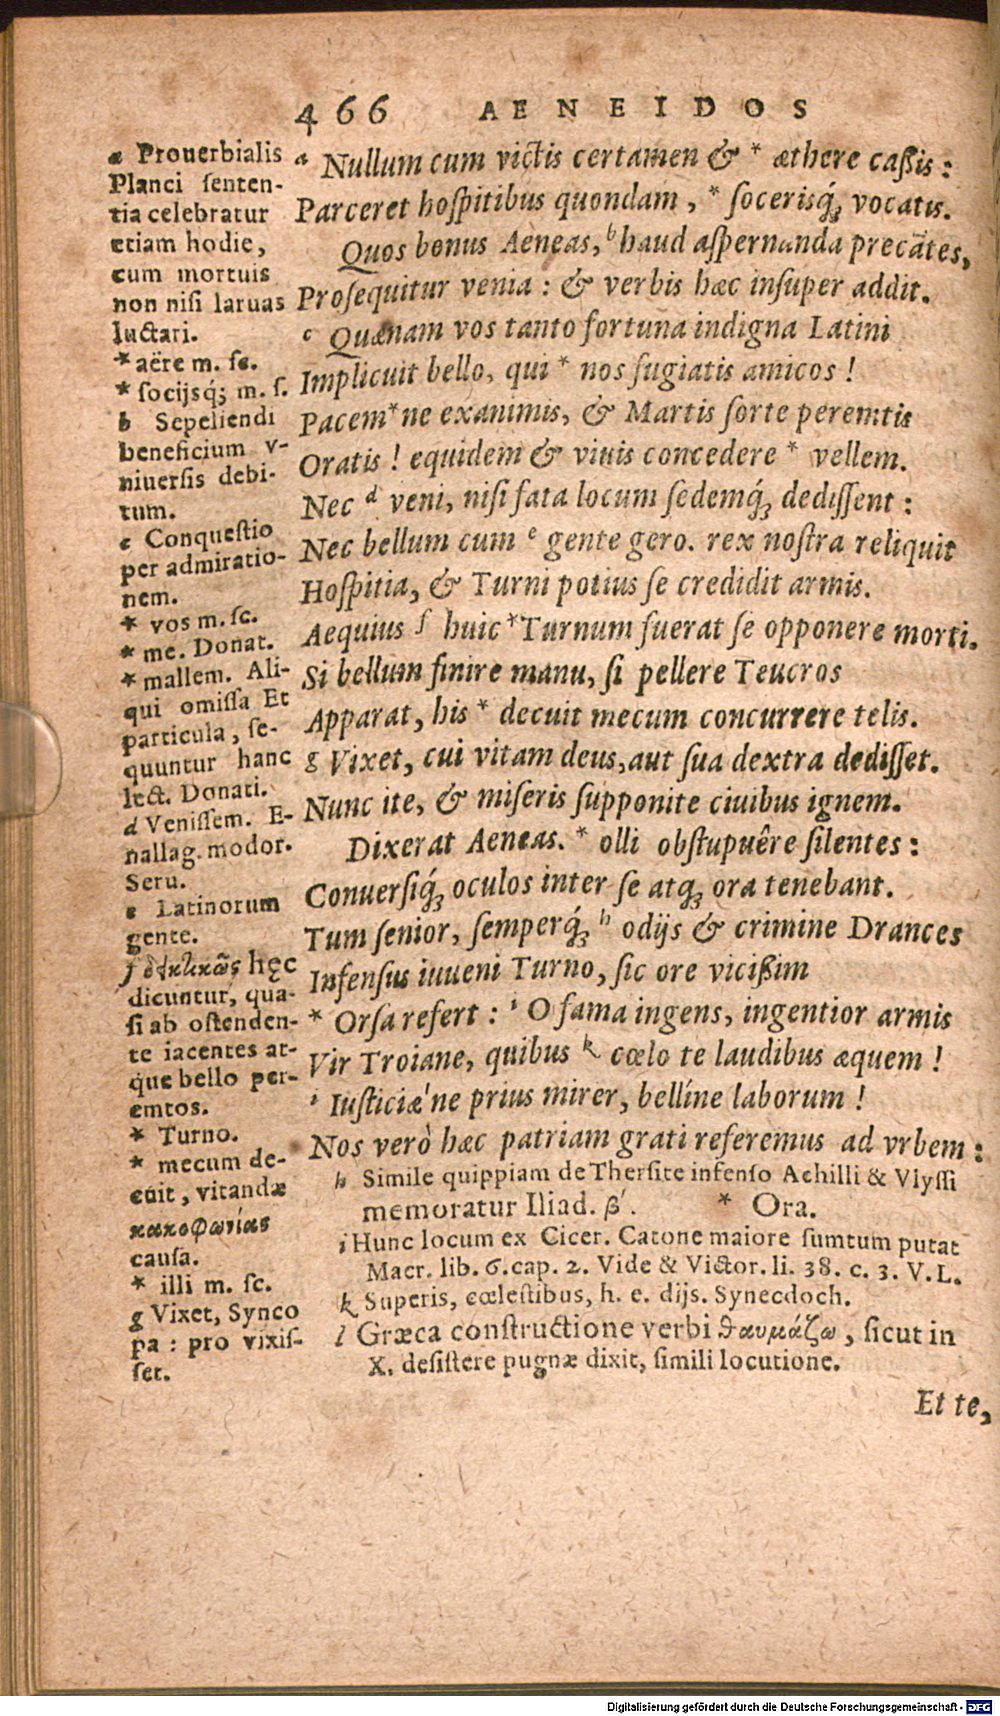 466 AENEIDOS
a Nullum cum victis certamen & * æthere caßis :
Parceret hoſpitibus quondam , * ſocerisq́ꝫ vocatis.
Quos bonus Aeneas, b haud aſpernanda precãtes,
Proſequitur venia : & verbis hæc inſuper addit.
c Quænam vos tanto fortuna indigna Latini
Implicuit bello, qui * nos fugiatis amicos !
Pacem * ne exanimis, & Martis ſorte peremtis
Oratis ! equidem & viuis concedere * vellem.
Nec d veni, niſi fata locum ſedemq́ꝫ dediſſent :
Nec bellum cum e gente gero. rex noſtra reliquit
Hoſpitia, & Turni potius ſe credidit armis.
Aequius f huic * Turnum fuerat ſe opponere morti.
Si bellum finire manu, ſi pellere Teucros
Apparat, his * decuit mecum concurrere telis.
g Vixet, cui vitam deus, aut ſua dextra dediſſet.
Nunc ite, & miſeris ſupponite ciuibus ignem.
Dixerat Aeneas. * olli obſtupuêre ſilentes :
Conuerſiq́ꝫ oculos inter ſe atqꝫ ora tenebant.
Tum ſenior, ſemperq́ꝫ h odijs & crimine Drances
Infenſus iuueni Turno, ſic ore vicißim
* Orſa refert : i O fama ingens, ingentior armis
Vir Troiane, quibus k cœlo te laudibus æquem !
l Iuſticiæ'ne prius mirer, bellíne laborum !
Nos verò hæc patriam grati referemus ad vrbem :
a Prouerbialis
Planci ſenten-
tia celebratur
etiam hodie,
cum mortuis
non niſi laruas
luctari.
* aëre m. ſc.
* ſocijsq́ꝫ m. ſ.
b Sepeliendi
beneficium v-
niuerſis debi-
tum.
c Conqueſtio
per admiratio-
nem.
* vos m. ſc.
* me. Donat.
* mallem. Ali-
qui omiſſa Et
particula, ſe-
quuntur hanc
lect. Donati.
d Veniſſem. E-
nallag. modor.
Seru.
e Latinorum
gente.
f δεικτικῶς hęc
dicuntur, qua-
ſi ab oſtenden-
te iacentes at-
que bello per-
emtos.
* Turno.
* mecum de-
cuit, vitandæ
κακοφωνίας
cauſa.
* illi m. ſc.
g Vixet, Synco
pa : pro vixiſ-
ſet.
h Simile quippiam de Therſite infenſo Achilli & Vlyſſi
memoratur Iliad. β'. * Ora.
i Hunc locum ex Cicer. Catone maiore ſumtum putat
Macr. lib. 6. cap. 2. Vide & Victor. li. 38. c. 3. V. L.
k Superis, cœleſtibus, h. e. dijs. Synecdoch.
l Græca conſtructione verbi θαυμάζω, ſicut in
X. deſiſtere pugnæ dixit, ſimili locutione.
Et te,
Digitalisierung gefördert durch die Deutsche Forschungsgemeinschaft - DFG